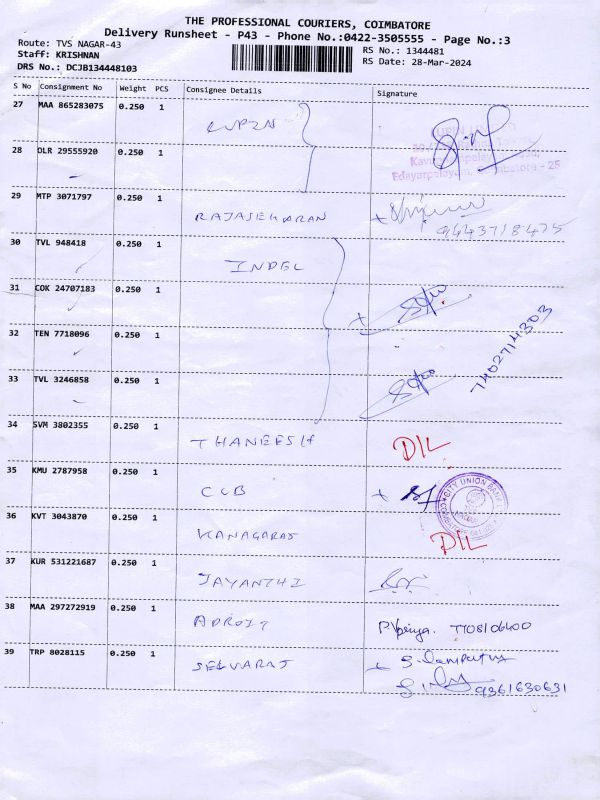 THE PROFESSIONAL COURIERS, COIMBATORE
Delivery Runsheet - P43 - Phone No.:0422-3505555 - Page No.:3
Route: TVS NAGAR-43
RS No.: 1344481
Staff: KRISHNAN
RS Date: 28-Mar-2024
DRS No.: DCJB134448103
S No Consignment No Weight PCS Consignee Details Signature
27 MAA 865283075 0.250 1
28 DLR 29555920 0.250 1
Edayarpalayam, Coimbatore - 25
29 MTP 3071797 0.250 1 RAJASEKARAN
9443718475
30 TVL 948418 0.250 1 INDEL
31 COK 24707183 0.250 1
32 TEN 7718096 0.250 1
7402714303
33 TVL 3246858 0.250 1
34 SVM 3802355 0.250 1 THANEESH D/L
35 KMU 2787958 0.250 1 CUB
CITY UNION BANK
36 KVT 3043870 0.250 1 KANAGARAJ D/L
37 KUR 531221687 0.250 1 JAYANTHI
38 MAA 297272919 0.250 1 ADROIT P. 7708106400
39 TRP 8028115 0.250 1 SELVARAJ
9361630631